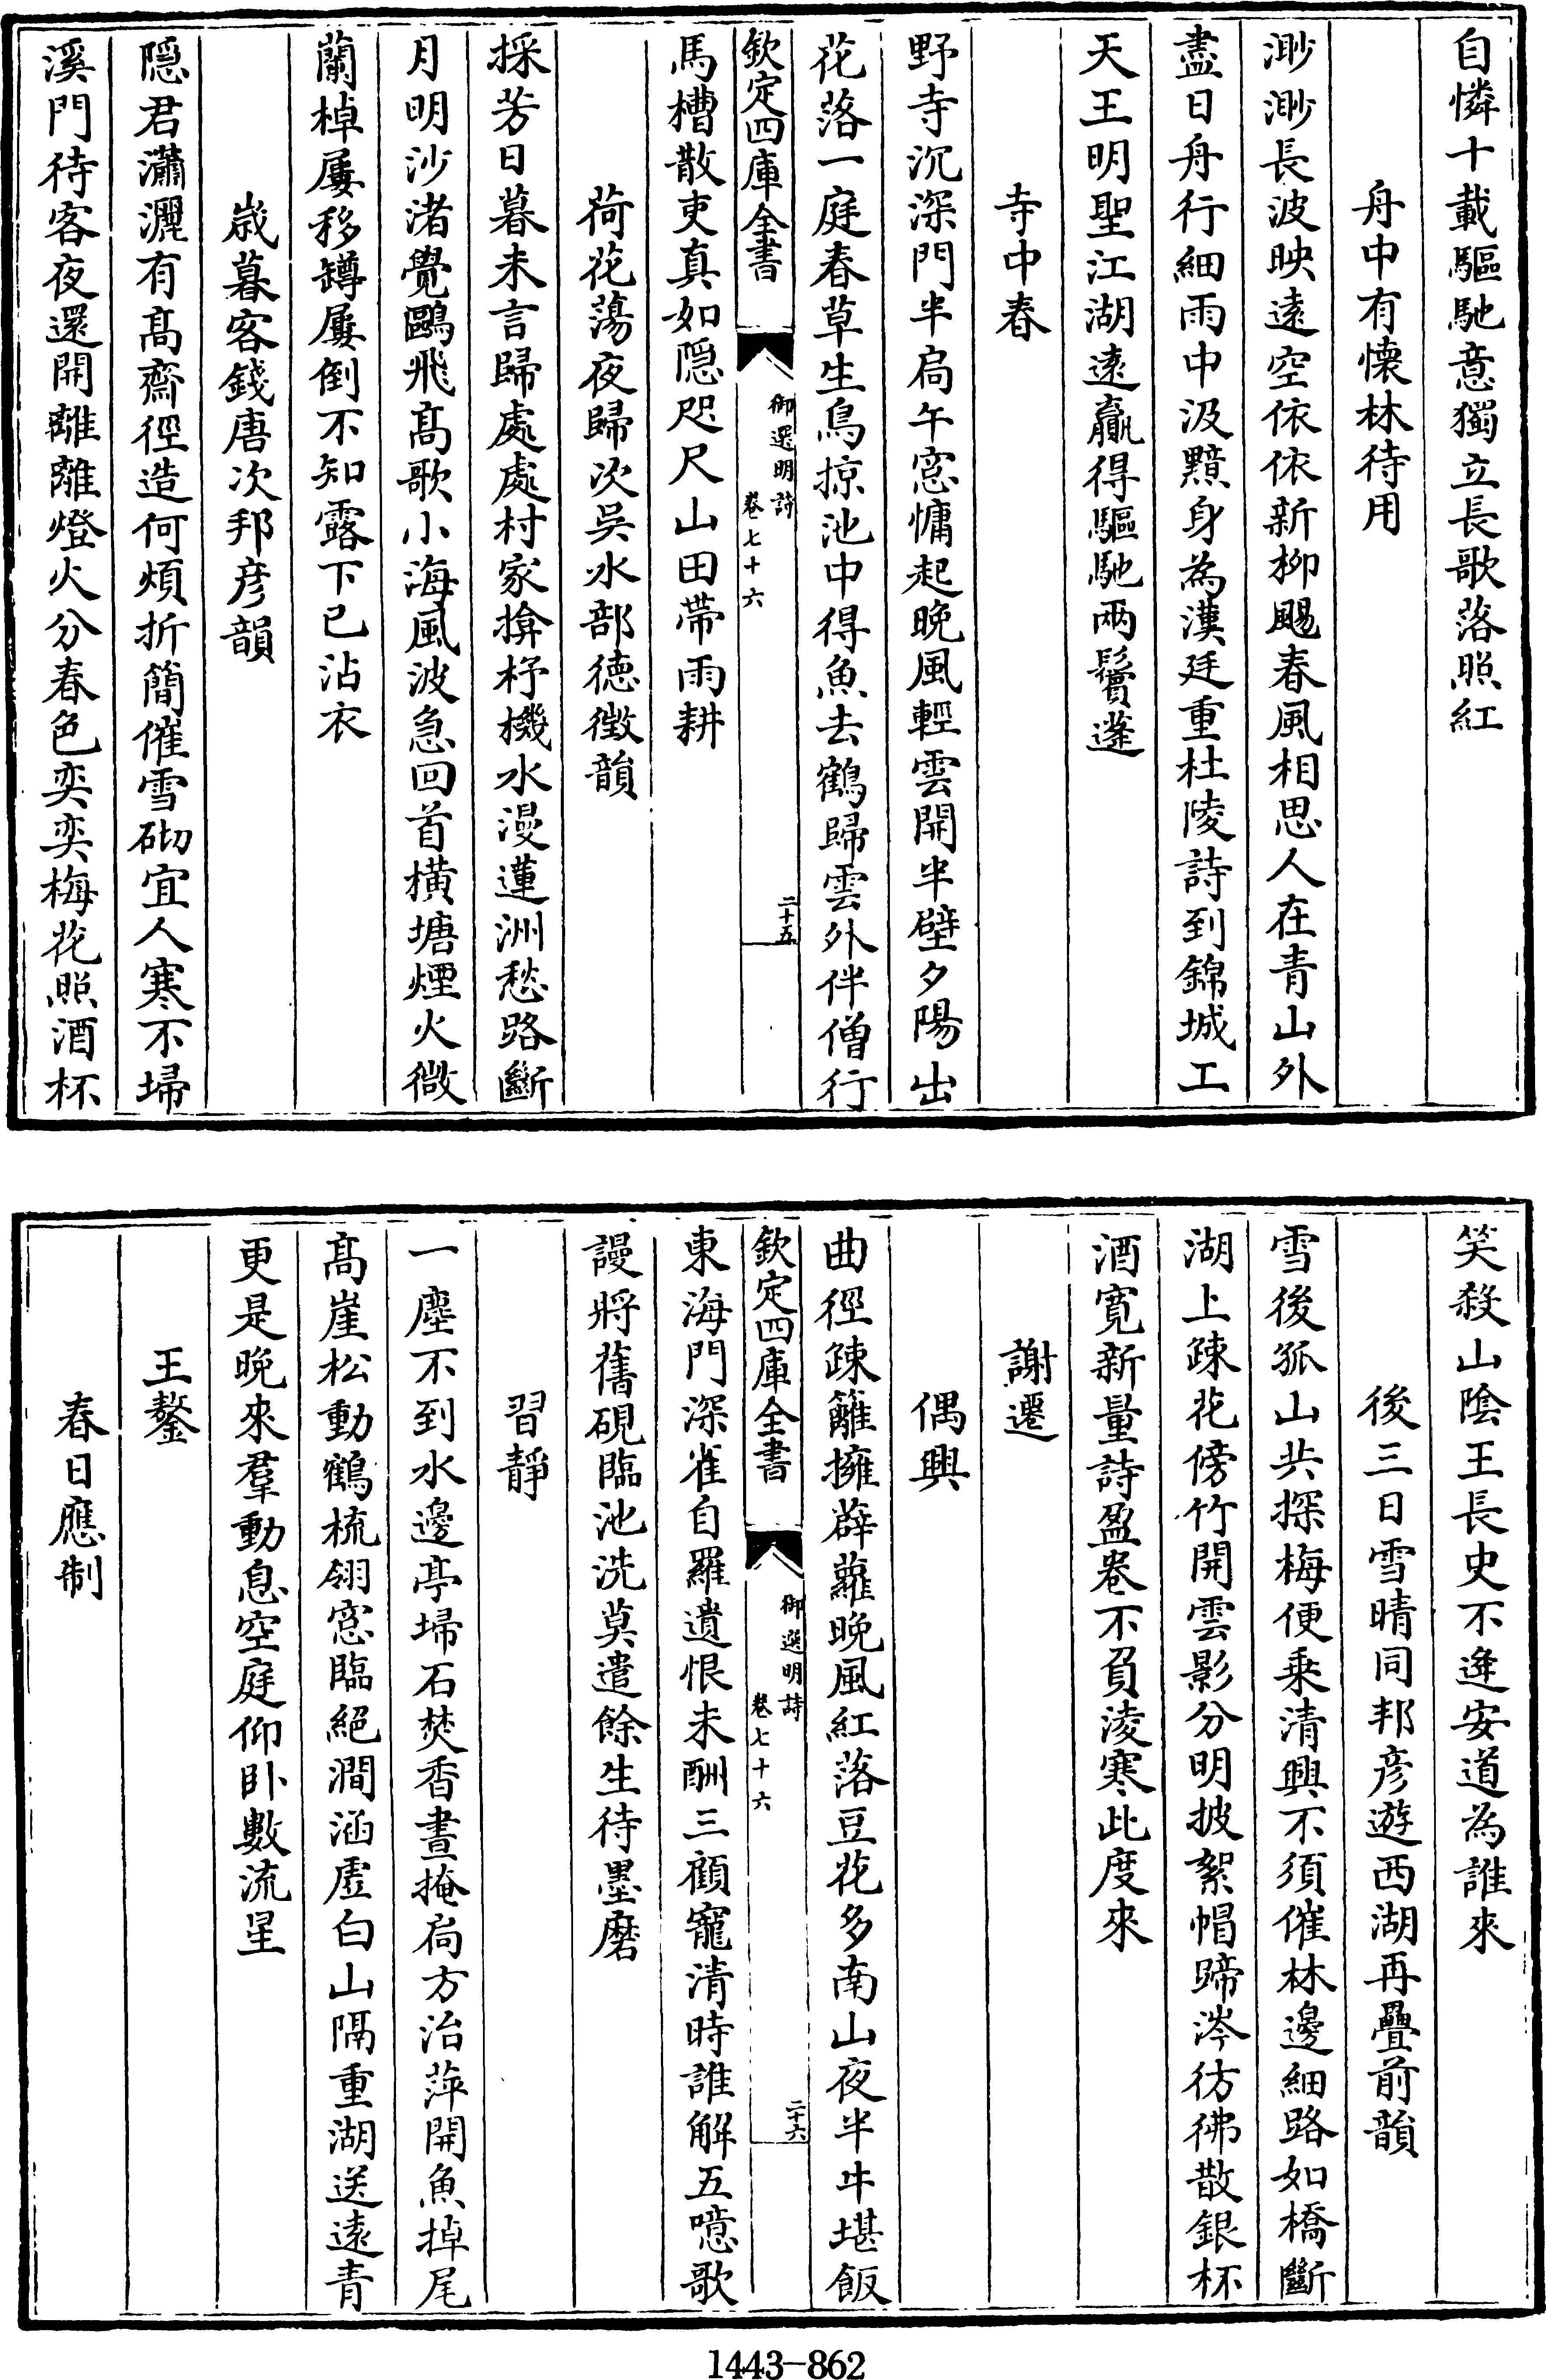 自憐十載驅馳意獨立長歌落照紅
舟中有懷林待用
渺渺長波映遠空依依新柳颺春風相思人在青山外
盡日舟行細雨中汲黯身為漢廷重杜陵詩到錦城工
天王明聖江湖遠贏得驅馳兩鬢蓬
寺中春
野寺沉深門半扃午窓慵起晚風輕雲開半壁夕陽出
花落一庭春草生鳥掠池中得魚去鶴歸雲外伴僧行
欽定四庫全書
御選明詩
卷七十六
二十五
馬槽散吏真如隠咫尺山田帶雨耕
荷花蕩夜歸次吳水部徳徴韻
採芳日暮未言歸處處村家揜杼機水漫蓮洲愁路斷
月明沙渚覺鷗飛髙歌小海風波急回首横塘煙火微
蘭棹屢移罇屢倒不知露下已沾衣
歳暮客錢唐次邦彦韻
隠君瀟灑有髙齋徑造何煩折簡催雪砌宜人寒不埽
溪門待客夜還開離離燈火分春色奕奕梅花照酒杯
笑殺山陰王長史不逢安道為誰來
後三日雪晴同邦彦遊西湖再疊前韻
雪後孤山共探梅便乗清興不須催林邊細路如橋斷
湖上疎花傍竹開雲影分明披絮帽蹄涔彷彿散銀杯
酒寛新量詩盈卷不負淩寒此度來
謝遷
偶興
曲徑疎籬擁薜蘿晚風紅落豆花多南山夜半牛堪飯
欽定四庫全書
御選明詩
卷七十六
二十六
東海門深雀自羅遺恨未酬三顧寵清時誰解五噫歌
謾將舊硯臨池洗莫遣餘生待墨磨
習靜
一塵不到水邊亭埽石焚香晝掩扃方沼萍開魚掉尾
髙崖松動鶴梳翎窓臨絕澗涵虛白山隔重湖送遠青
更是晚來羣動息空庭仰卧數流星
王鏊
春日應制
1443-862